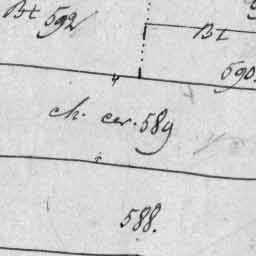 Bt 592
Bt
590.
ch. car. 589
588.